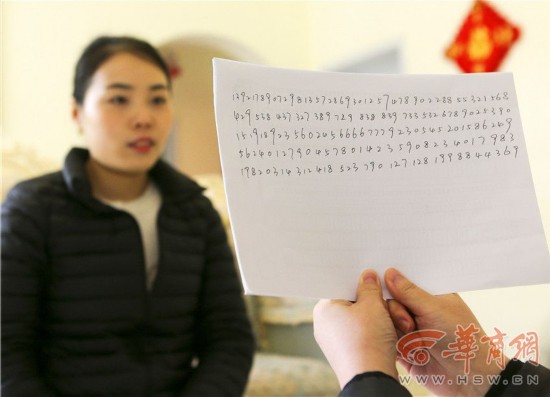 1392178907298135728693012574789022885532 1568
429 538 437 327 389 729 838 839 735 532678902539 0
15 9189235602456666777923054520158 6249
562401279045780142359082340179 83
19820314312418 323 790 127 128 1998844369
華商網
WWW.HSW.CN